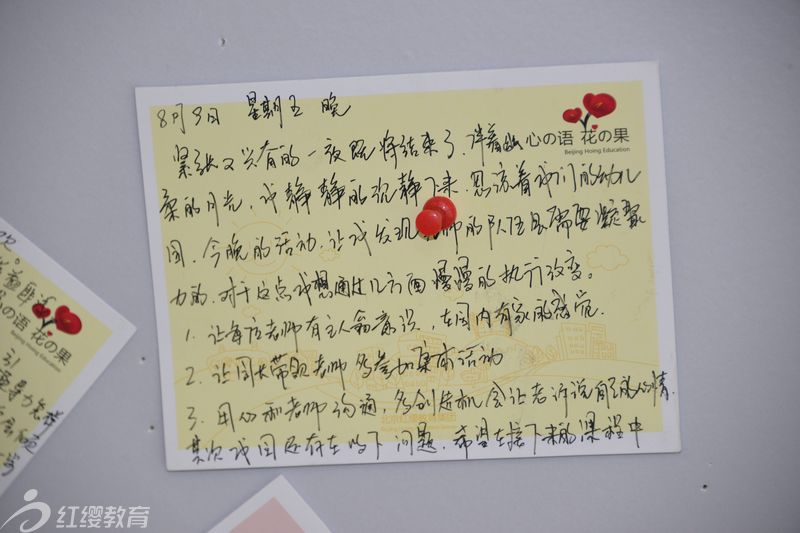 8月9日 星期五 晚
心の语 花の果
Beijing Hoing Education
紧张又兴奋的一夜既将结束了,伴着幽
柔的月光,我静静的沉静下来,思索着我们的幼儿
园,今晚的活动,让我发现 师的队伍是需要凝聚
力的,对于这点我想通过几方面慢慢的执行改变。
1. 让每位老师有主人翁意识,在园内有家的感觉.
2. 让园长带领老师多参加集体活动
3. 用心和老师沟通,多创造机会让老 诉说自己的心情.
其次我园还存在以下问题,希望在接下来的课程中
心の语 花の果
Beijing Hoing Education
红缨教育